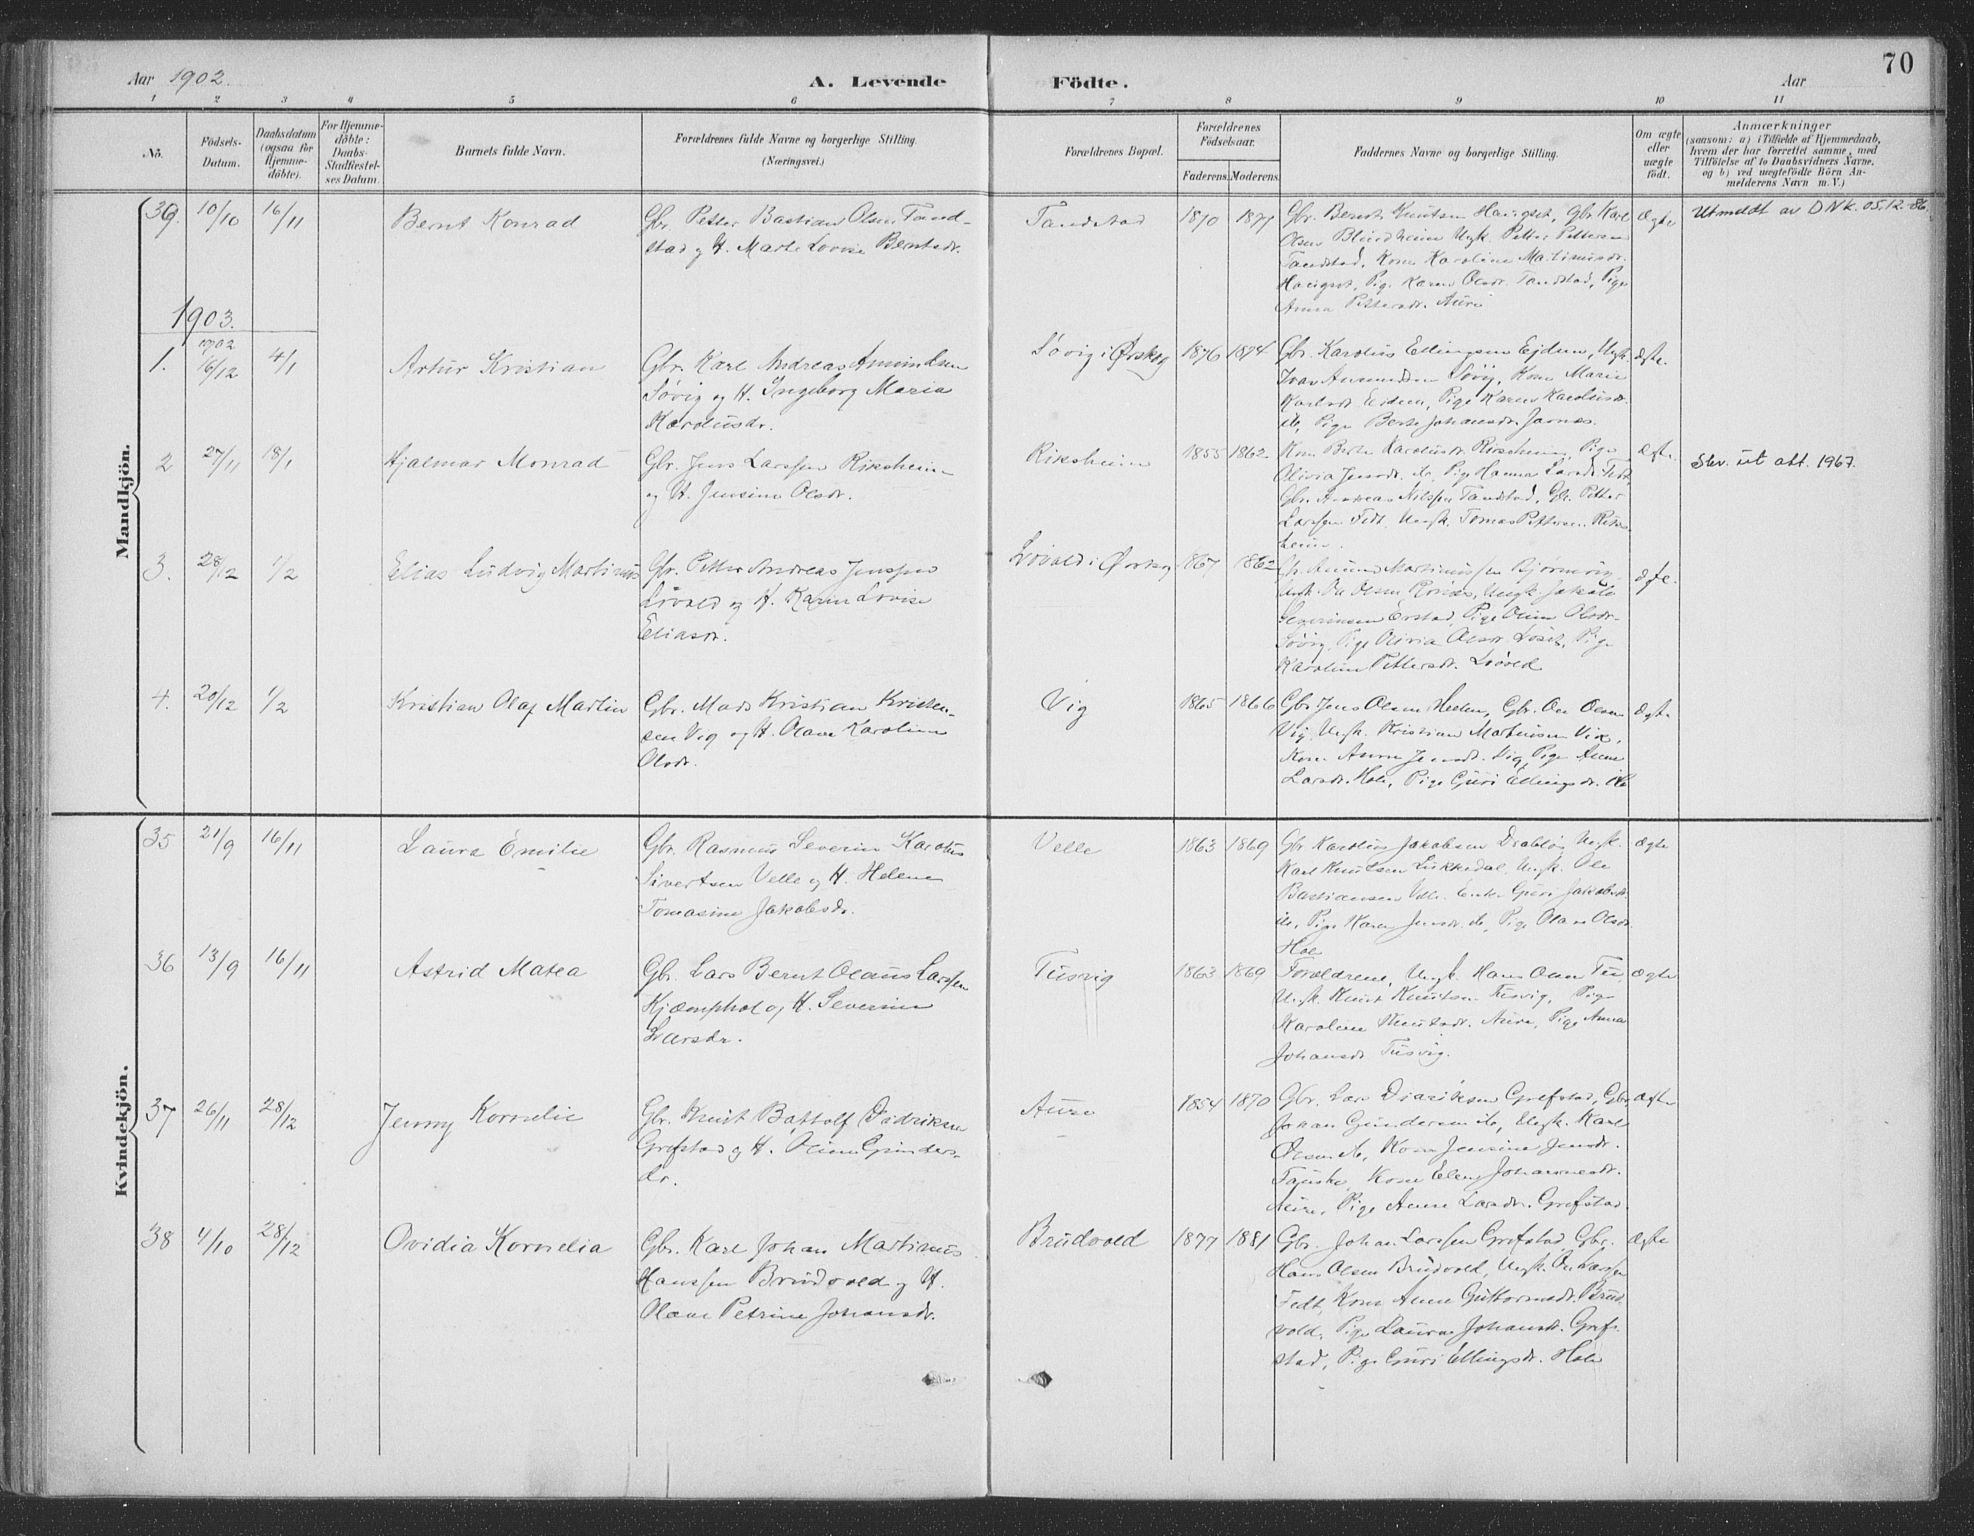 70
Aar 1902.
A. Levende Födte.
Aar
1 2 3 4 5 6 7 8 9 10 11
No.
Födsels-Datum.
Daabsdatum (ogsaa for Hjemme-döbte).
For Hjemme-döbte: Daabs-Stadfæstel-ses Datum.
Barnets fulde Navn.
Forældrenes fulde Navne og borgerlige Stilling.
(Næringsvei.)
Forældrenes Bopæl.
Forældrenes Födselsaar.
Faderens. Moderens.
Faddernes Navne og borgerlige Stilling.
Om ægte eller uægte födt.
Anmærkninger
(saasom: a) i Tilfælde af Hjemmedaab,
hvem der har forrettet samme, med
Tilföielse af to Daabsvidners Navne,
og b) ved uægtefödte Börn An-
melderens Navn m. V.)
Mandkjön.
39. 10/10 16/11 Bernt Konrad
Gbr. Petter Bastian Olsen Tand-
stad og H. Marte Lovise Berntsdr.
Tandstad 1870 1871
Gbr. Bernt Knutsen Haugset, Gbr. Karl
Olsen Blindheim Ungk. Petter Pettersen
Tandstad, Kone Karoline Martinusdr.
Haugset, Pig. Karen Olsdr. Tandstad, Pige
Anna Pettersdr. Aure
Ægte
Utmeldt av DNK. 05.12-86.
1903.
1. 1902 16/12 4/1 Artur Kristian
Gbr. Karl Andreas Amundsen
Søvig og H. Ingeborg Maria
Karolusdr.
Søvig i Ørskog 1876 1874
Gbr. Karolus Ellingsen Ejdem, Ungk.
Ivar Amundsen Søvig, Kone Marie
Karlsdr. Eidem, Pige Karen Karolusdr.
ib, Pige Berte Johansdr. Jarnes.
Ægte.
2 27/11 18/1 Hjalmar Monrad
Gbr. Jens Larssen Riksheim
og H. Jensine Olsdr.
Riksheim 1855 1862
Kone Berte Karolusdr. Riksheim, Pige
Olivia Jensdr. ib, Pige Hanna Larsdr. Fedt,
Gbr. Andreas Nilssen Tandstad, Gbr. Petter
Larssen Fedt, Ungk. Tomas Pettersen Riks-
heim.
Ægte.
Skr. ut att. 1967.
3. 28/12 1/2 Elias Ludvig Martinus
Gbr. Petter Andreas Jenssen
Løvold og H. Karen Lovise
Eliasdr.
Løvold i Ørskog 1867 1862
Gbr. Amund Martinussen
Ungk. Ole Olsen Ungk. Jakob
Severinsen Erstad, Pige Oline Olsdr.
Søvig, Pige Olivia Olsdr. Løset, Pige
Karoline Pettersdr. Løvold
Ægte.
4. 20/12 1/2 Kristian Olaf Martin
Gbr. Mads Kristian Kristen-
sen Vig og H. Olave Karoline
Olsdr.
Vig 1865 1866
Gbr. Jens Olsen Hellen, Gbr. Ole Olsen
Vig, Ungk. Kristian Martinsen Vik,
Kone Anne Jensdr. Vig, Pige Anne
Larsdr. Hole, Pige Guri Ellingsdr. ib
Ægte
Kvindekjön.
35 21/9 16/11 Laura Emilie
Gbr. Rasmus Severin Karolus
Sivertsen Velle og H. Helene
Tomasine Jakobsdr.
Velle 1863 1869
Gbr. Karolus Jakobsen Drabløs, Ungk.
Karl Knutsen Lukkedal, Ungk. Ole
Bastiansen Velle, Enke Guri Jakobsdr.
ib, Pige Karen Jensdr. ib, Pige Olave Olsdr.
Hole
Ægte
36 13/9 16/11 Astrid Matea
Gbr. Lars Bernt Olaus Larssen
Kjæmphol og H. Severine
Larsdr.
Tusvig 1863 1869
Forældrene, Ungk. Hans Olsen Tu.
Ungk. Knut Knutsen Tusvig, Pige
Karoline Knutsdr. Aure, Pige Anna
Johansdr. Tusvig.
Ægte
37 26/11 28/12 Jenny Kornelie
Gbr. Knut Battolf Didriksen
Grefstad og H. Oline Gunders-
dr.
Aure 1854 1870
Gbr. Lars Didriksen Grefstad, Gbr.
Johan Gundersen ib, Ungk. Karl
Olsen ib, Kone Jensine Jensdr.
Tynske, Kone Elen Johannesdr.
Aure, Pige Anne Larsdr. Grefstad.
Ægte
38 4/10 28/12 Ovidia Kornelia
Gbr. Karl Johan Martinus
Hanssen Brudvold og H.
Olave Petrine Johansdr.
Brudvold 1877 1881
Gbr. Johan Larssen Grefstad, Gbr.
Hans Olsen Brudvold, Ungk. Ole Larssen
Fedt, Kone Anne Guttormsdr. Brud-
vold, Pige Laura Johansdr. Gref-
stad, Pige Guri Ellingsdr. Hole
Ægte